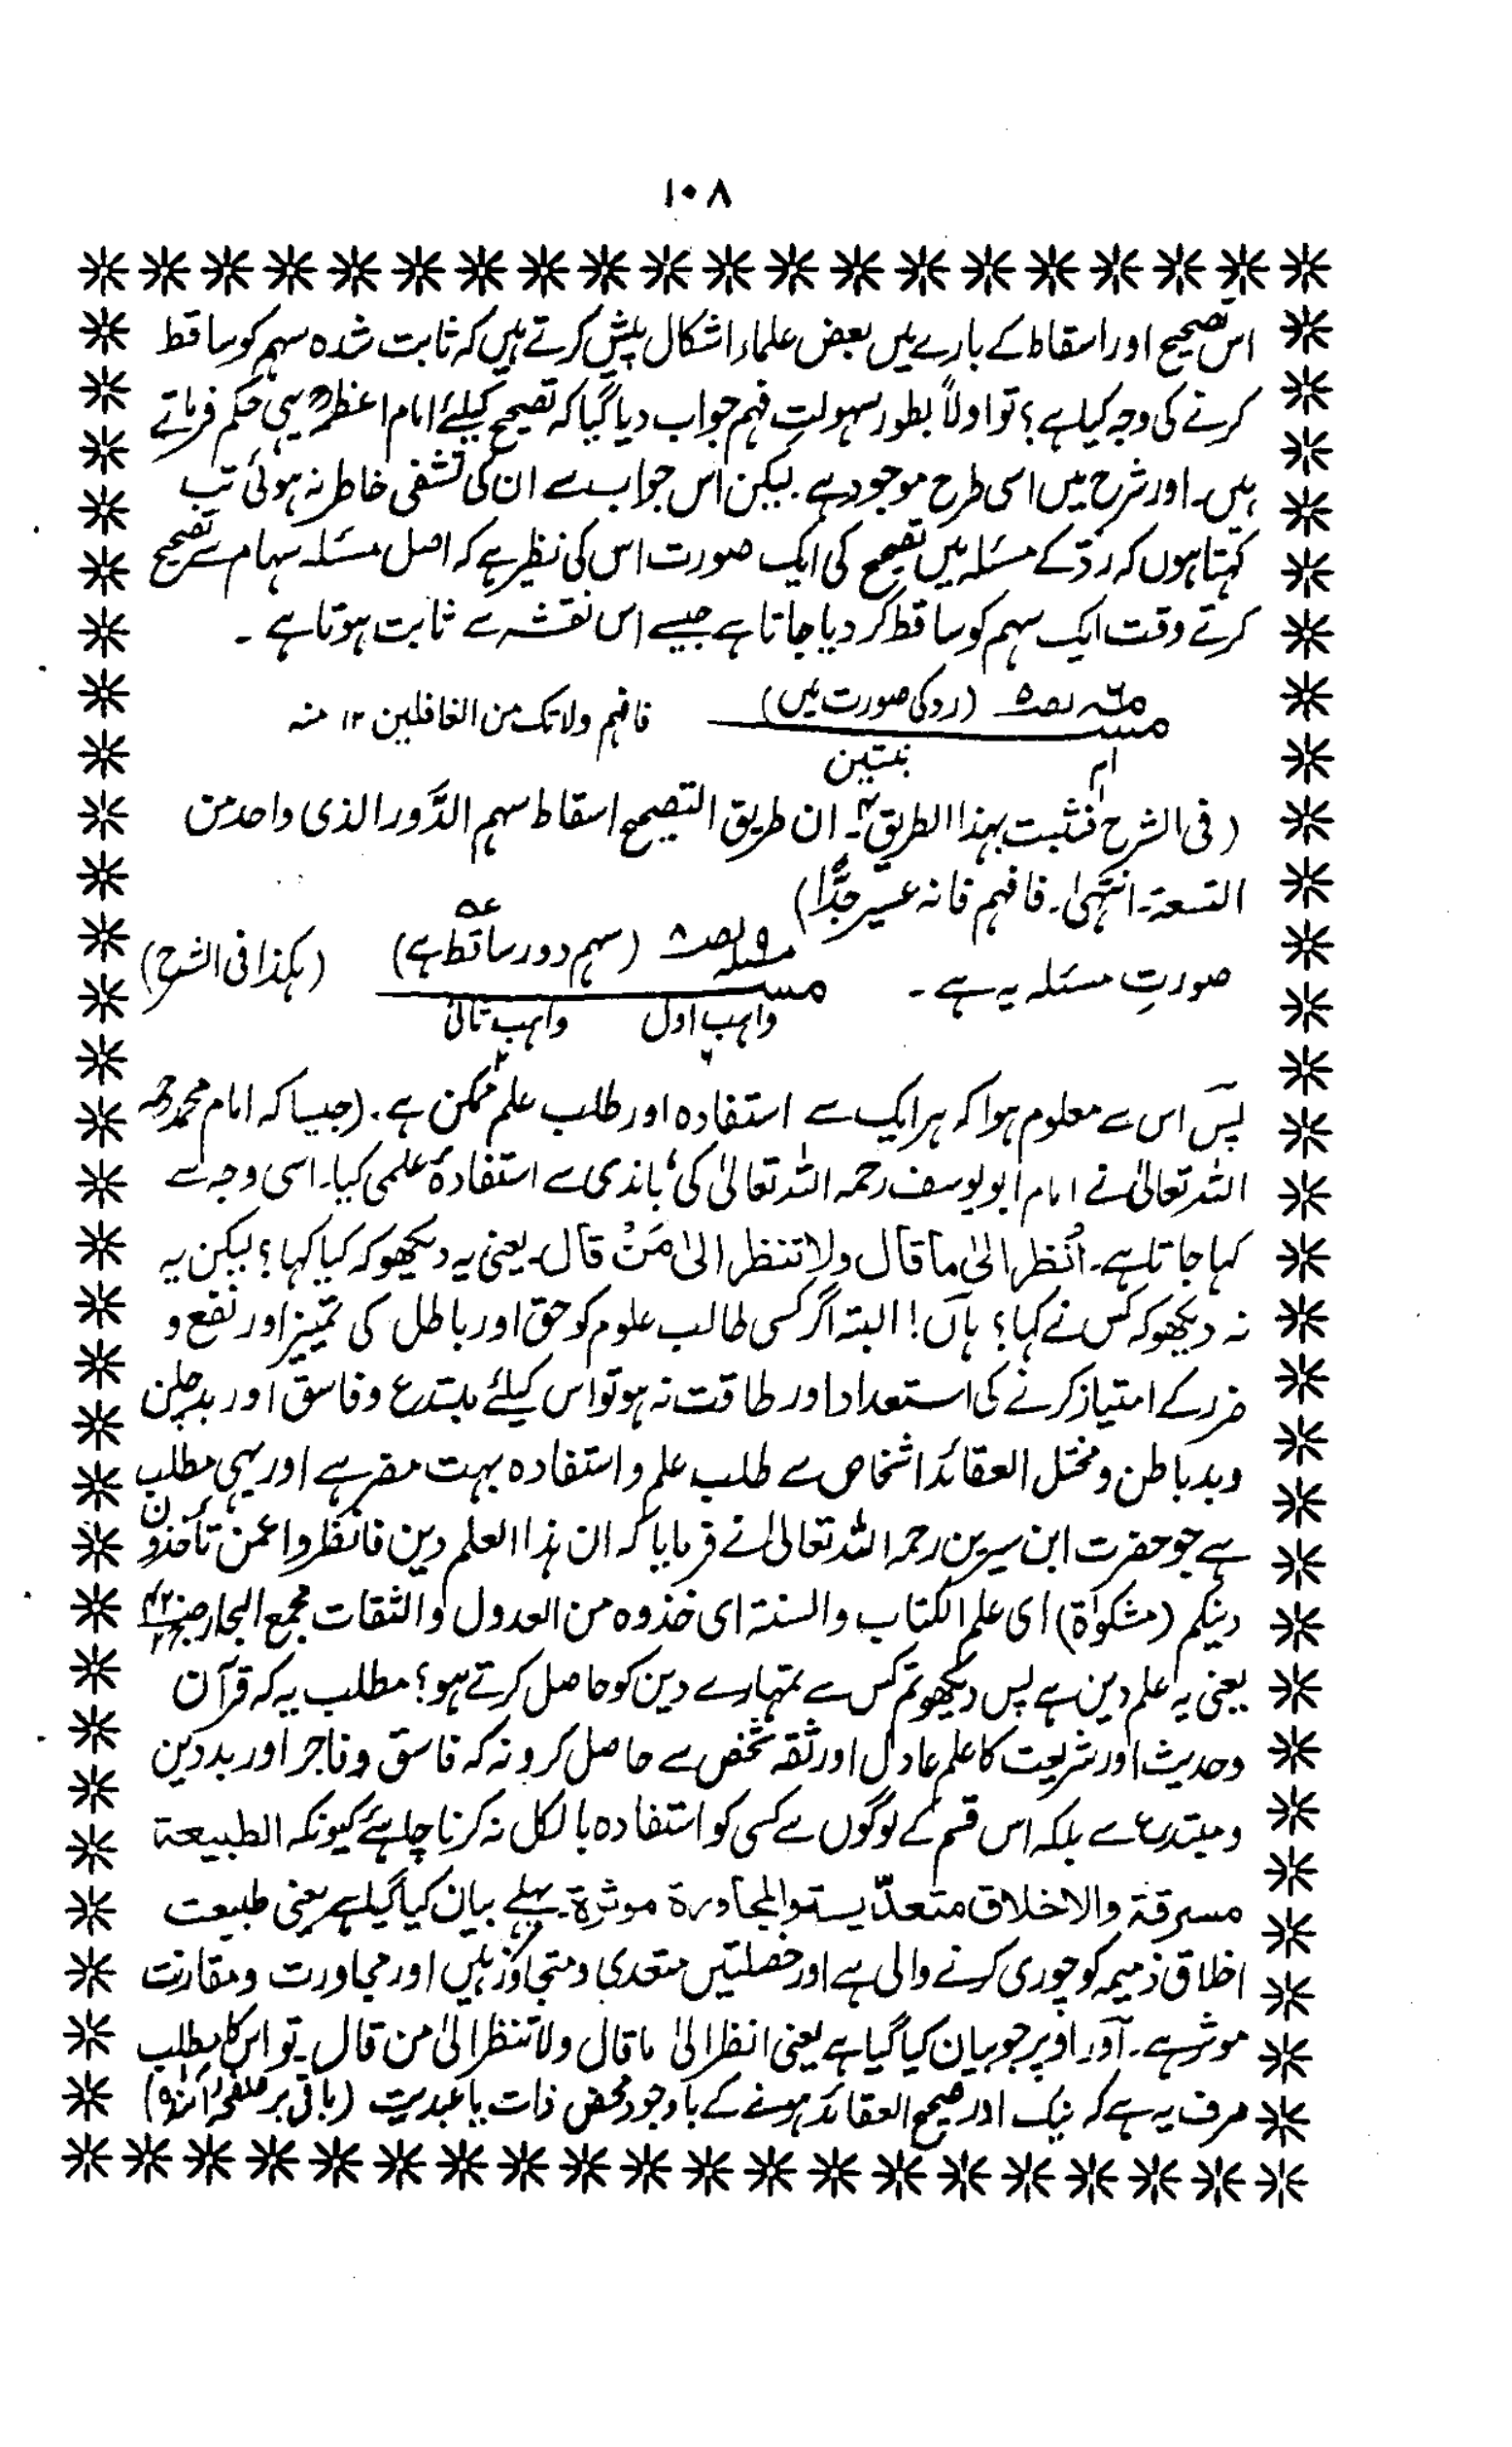 ۱۰۸
اس تصحیح اور اسقاط کے بارے میں بعض علماء اشکال پیش کرتے ہیں کہ ثابت شدہ سہم کو ساقط
کرنے کی وجہ کیا ہے؟ تو اولاً بطور سہولتِ فہم جواب دیا گیا کہ تصحیح کیلئے امام اعظمؒ یہی حکم فرماتے
ہیں۔ اور شرح میں اسی طرح موجود ہے۔ لیکن اس جواب سے ان کی تشفی خاطر نہ ہوئی تب
کہتا ہوں کہ ردّ کے مسئلہ میں تصحیح کی ایک صورت اس کی نظیر ہے کہ اصل مسئلہ سہام سے تصحیح
کرتے وقت ایک سہم کو ساقط کر دیا جاتا ہے جیسے اس نقشہ سے ثابت ہوتا ہے ۔
(رد کی صورت میں) فافہم ولا تک من الغافلین ۱۲ منہ
ام بنتین
(فی الشرح فثبت بہذا الطریق ان طریق التصحیح اسقاط سہم الدَّور الذی واحد من
التسعۃ۔ انتہیٰ۔ فافہم فانہ عسیر جدًّا)
صورتِ مسئلہ یہ ہے ۔ (سہم دور ساقط ہے) عہ (ہکذا فی الشرح)
واہب اول واہب ثانی
پس اس سے معلوم ہوا کہ ہر ایک سے استفادہ اور طلب علم ممکن ہے۔ (جیسا کہ امام محمد رحمہ
اللہ تعالیٰ نے امام ابو یوسف رحمہ اللہ تعالیٰ کی باندی سے استفادۂ علمی کیا۔ اسی وجہ سے
کہا جاتا ہے۔ اُنظر الیٰ ما قال ولا تنظر الیٰ مَنْ قال۔ یعنی یہ دیکھو کہ کیا کہا؟ لیکن یہ
نہ دیکھو کہ کس نے کہا؟ ہاں! البتہ اگر کسی طالب علوم کو حق اور باطل کی تمییز اور نفع و
ضرر کے امتیاز کرنے کی استعداد اور طاقت نہ ہو تو اس کیلئے مبتدع و فاسق اور بدچلن
و بد باطن و مختل العقائد اشخاص سے طلب علم و استفادہ بہت مضر ہے اور یہی مطلب
ہے جو حضرت ابن سیرین رحمہ اللہ تعالیٰ نے فرمایا کہ ان ہذا العلم دین فانظروا عمن تأخذون
دینکم (مشکوٰۃ) ای علم الکتاب والسنۃ ای خذوہ من العدول والثقات مجمع البحار
یعنی یہ علم دین ہے پس دیکھو تم کس سے تمہارے دین کو حاصل کرتے ہو؟ مطلب یہ کہ قرآن
و حدیث اور شریعت کا علم عادل اور ثقہ شخص سے حاصل کرو نہ کہ فاسق و فاجر اور بد دین
و مبتدع سے بلکہ اس قسم کے لوگوں سے کسی کو استفادہ بالکل نہ کرنا چاہئے کیونکہ الطبیعۃ
مسرقۃ والاخلاق متعدّیۃ والمجاورۃ موثرۃ۔ پہلے بیان کیا گیا ہے یعنی طبیعت
اخلاق ذمیمہ کو چوری کرنے والی ہے اور خصلتیں متعدی و متجاوز ہیں اور مجاورت و مقارنت
موثر ہے۔ اور اوپر جو بیان کیا گیا ہے یعنی انظر الیٰ ما قال ولا تنظر الیٰ من قال۔ تو اس کا مطلب
صرف یہ ہے کہ نیک اور صحیح العقائد ہونے کے باوجود محض ذات یا عبدیت (باقی بر صفحہ آئندہ)